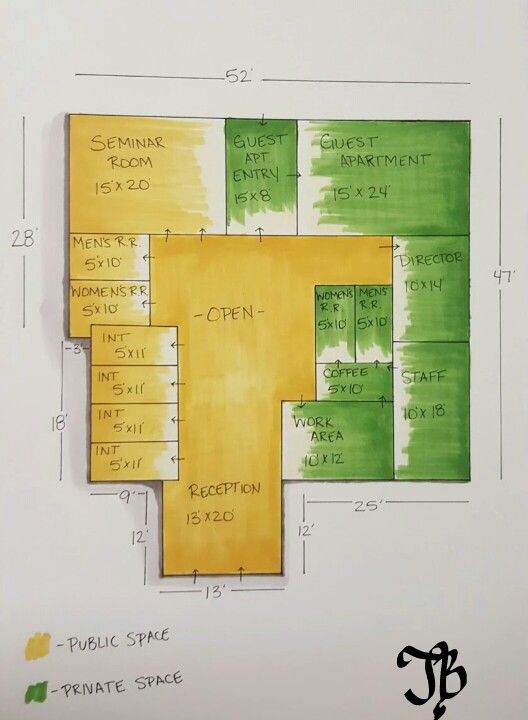 52'
SEMINAR
ROOM
15' X 20'
GUEST
APT
ENTRY
15 X 8'
GUEST
APARTMENT
15' X 24'
28'
47'
MEN'S R.R.
5'X10'
WOMEN'S R.R.
5'X10'
DIRECTOR
10'X14'
- OPEN -
WOMEN'S
R.R.
5'X10'
MEN'S
R.R.
5'X10'
3'
INT
5'X11'
INT
5'X11'
INT
5'X11'
INT
5'X11'
COFFEE
5'X10'
STAFF
10' X 18'
18'
WORK
AREA
10'X12'
RECEPTION
13' X 20'
9'
25'
12'
12'
13'
- PUBLIC SPACE
- PRIVATE SPACE
JB